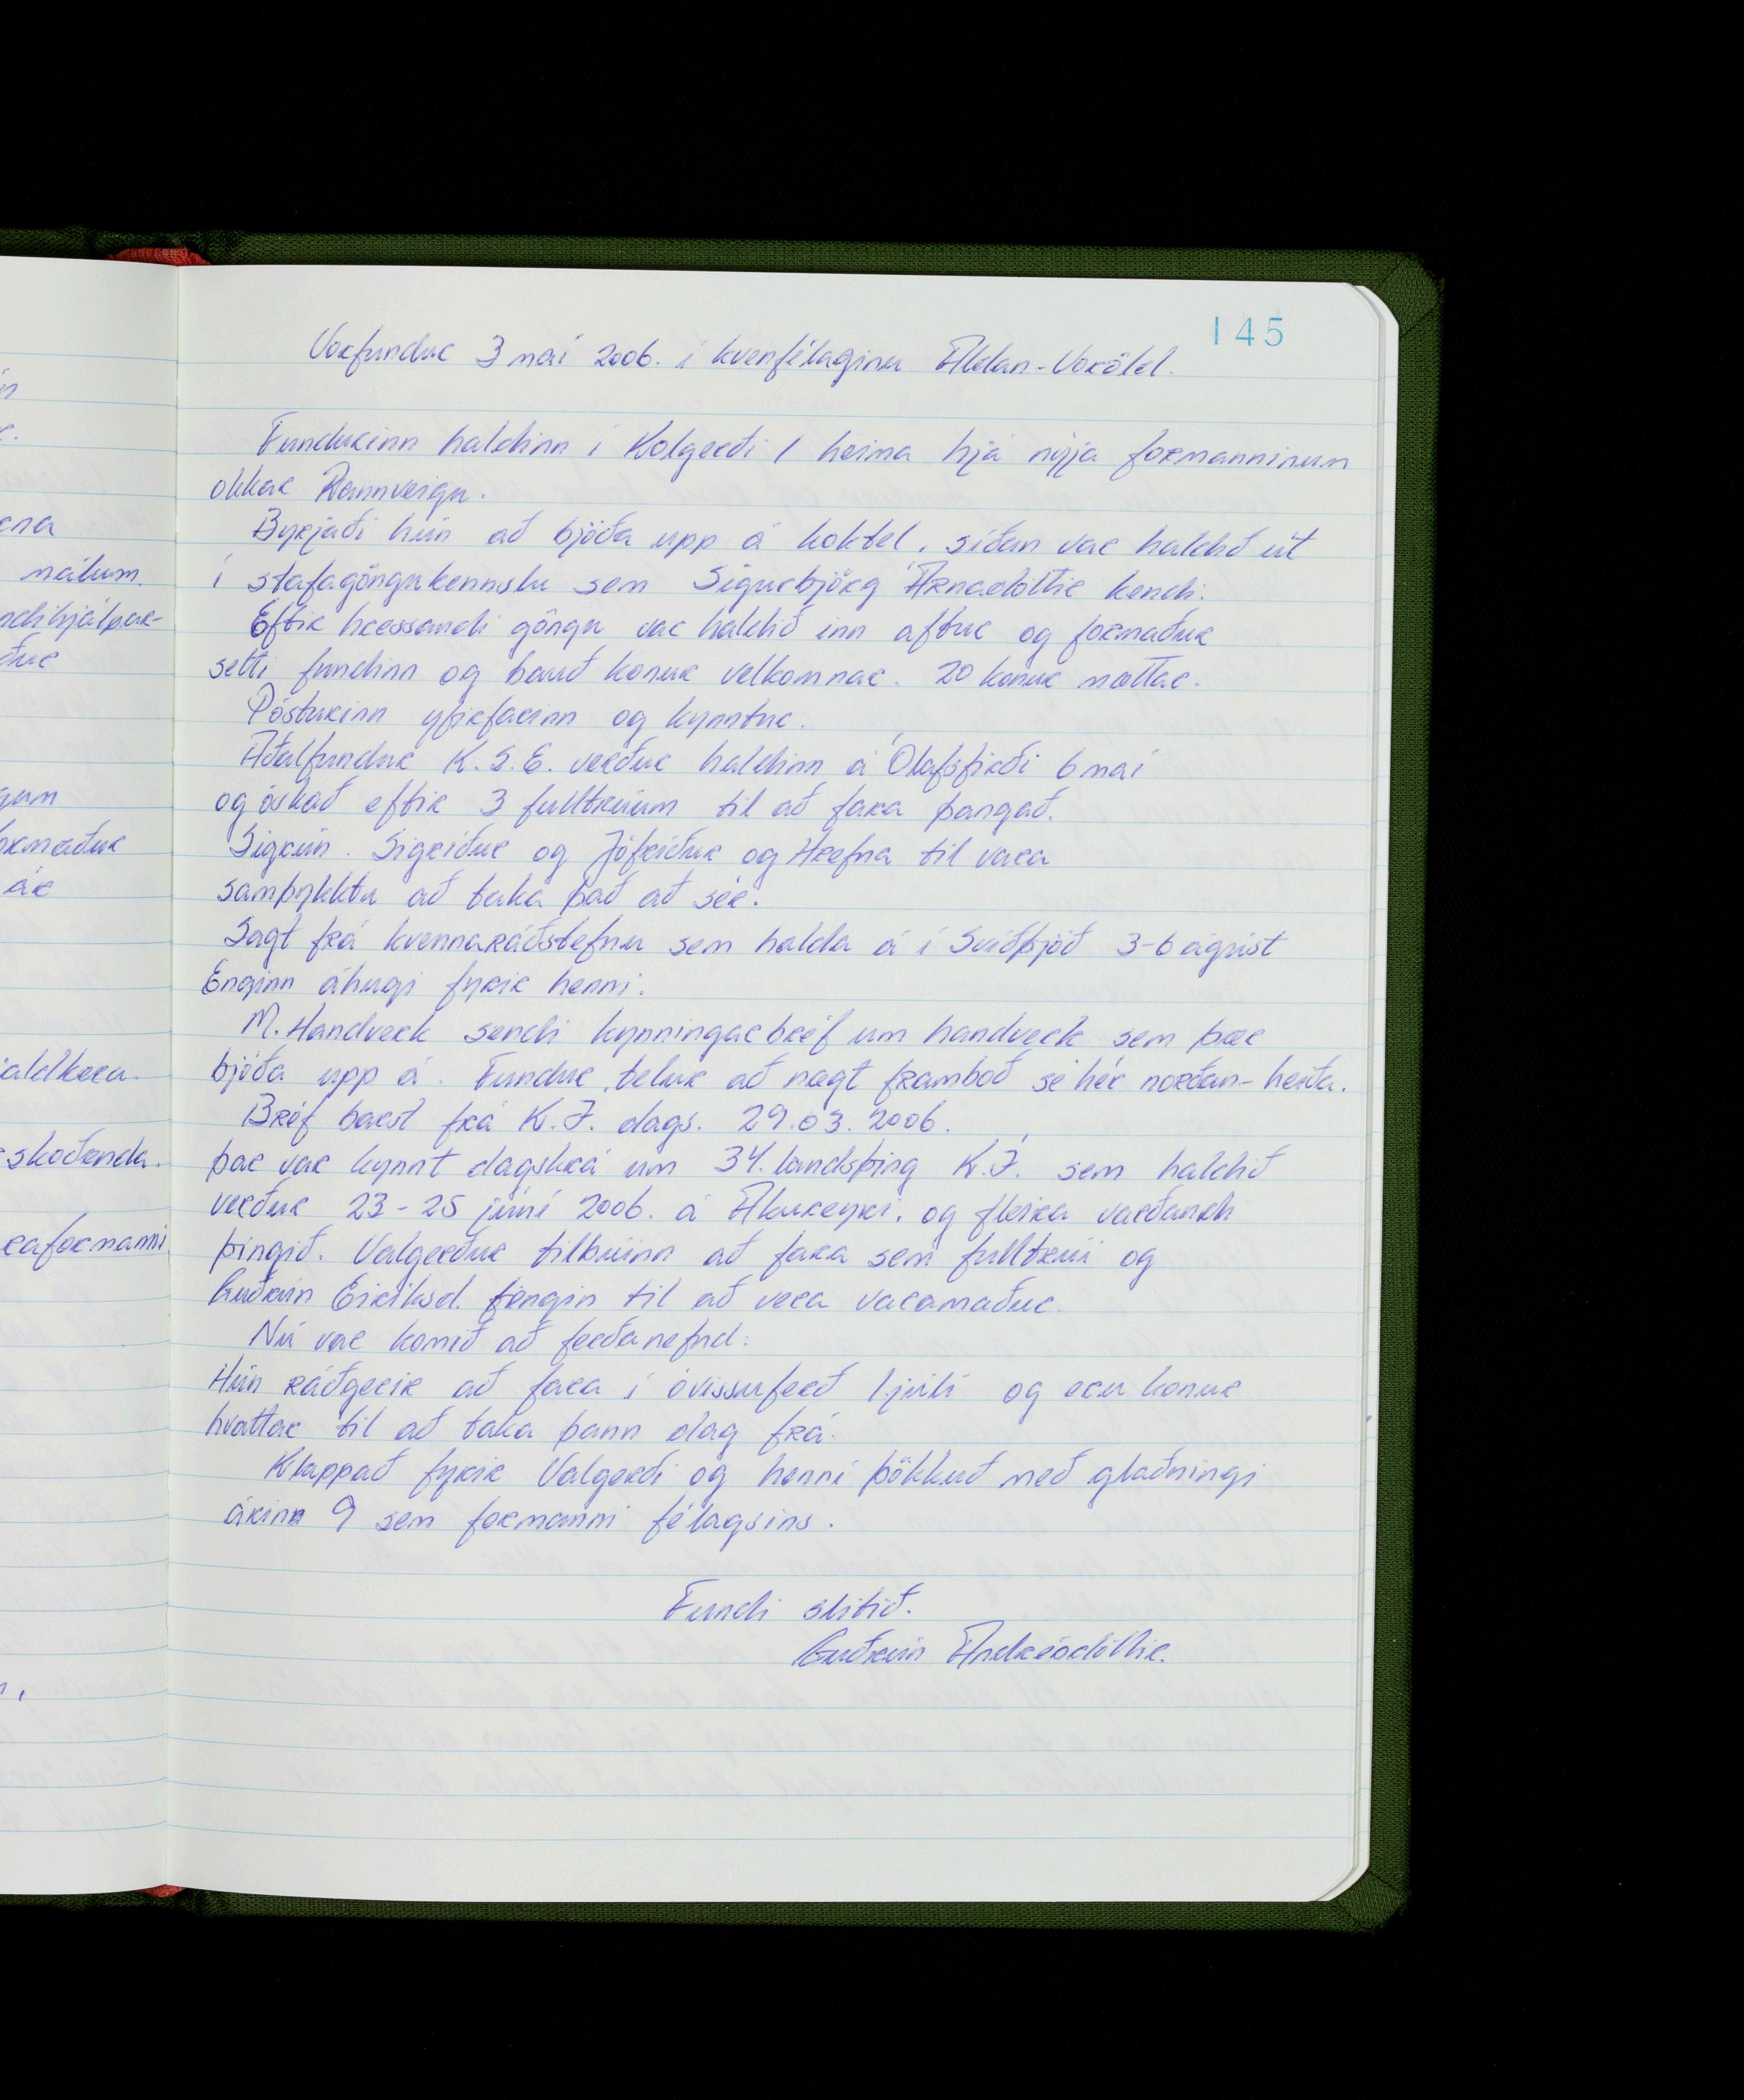 145
Vorfundur 3 maí 2006. í kvenfélaginu Aldan-Voröld.
Fundurinn haldinn í Kolgerði 1 heima hjá nýja formanninum
okkar Rannveigu.
Byrjaði hún að bjóða upp á koktel, síðan var haldið út
í stafagöngukennslu sem Sigurbjörg Árnadóttir kendi.
Eftir hressandi göngu var haldið inn aftur og formaður
setti fundinn og bauð konur velkomnar. 20 konur mættar.
Pósturinn yfirfarinn og kynntur.
Aðalfundur K.S.E. verður haldinn á Ólafsfirði 6 maí
og óskað eftir 3 fulltrúum til að fara þangað.
Sigrún. Sigríður og Jófríður og Hrefna til vara
samþykktu að taka það að sér.
Sagt frá kvennaráðstefnu sem halda á í Svíþjóð 3-6 ágúst
Enginn áhugi fyrir henni.
M. Handverk sendi kynningarbréf um handverk sem þær
bjóða upp á. Fundur telur að nægt framboð sé hér norðan-heiða.
Bréf barst frá K.Í. dags. 29.03.2006.
þar var kynnt dagskrá um 34. landsþing K.Í. sem haldið
verður 23-25 júní 2006. á Akureyri, og fleira varðandi
þingið. Valgerður tilbúinn að fara sem fulltrúi og
Guðrún Eiríksd. fengin til að vera varamaður.
Nú var komið að ferðanefnd:
Hún ráðgerir að fara í óvissuferð 1 júlí og eru konur
hvattar til að taka þann dag frá.
Klappað fyrir Valgerði og henni þökkuð með glaðningi
árinn 9 sem formanni félagsins.
Fundi slitið.
Guðrún Andrésdóttir.
ena
málum.
ndihjálpar-
ður
gum
ormaður
ár
jaldkera
skoðenda.
raformanni